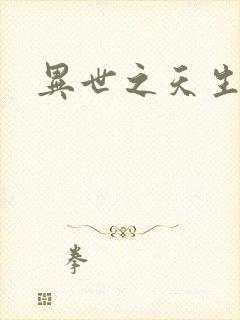 異世之天生
拳